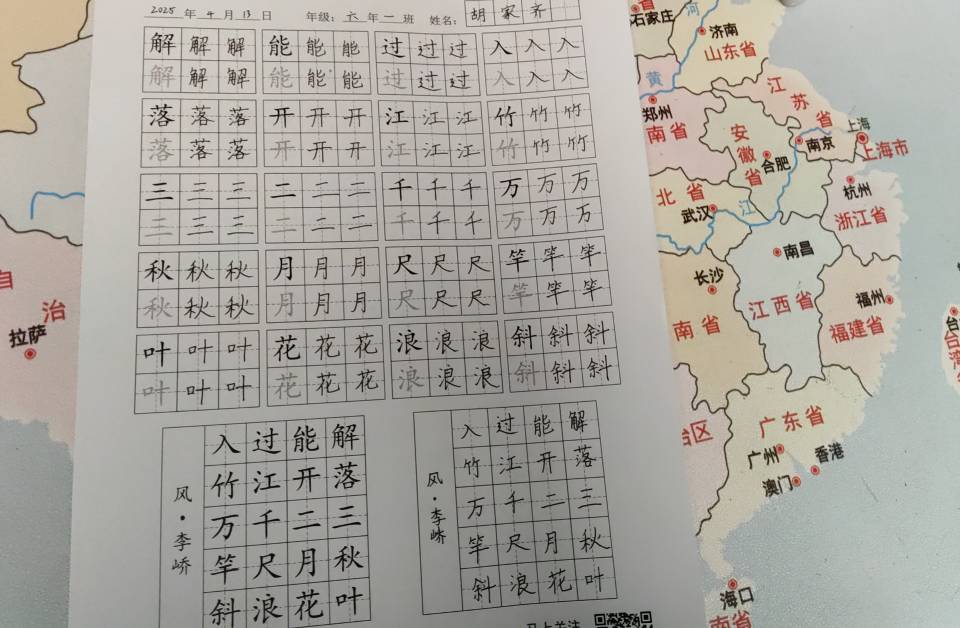 2025 年 4 月 13 日 年级: 六 年 一 班 姓名: 胡 家 齐
解 解 解 能 能 能 过 过 过 入 入 入
解 解 解 能 能 能 过 过 过 入 入 入
落 落 落 开 开 开 江 江 江 竹 竹 竹
落 落 落 开 开 开 江 江 江 竹 竹 竹
三 三 三 二 二 二 千 千 千 万 万 万
三 三 三 二 二 二 千 千 千 万 万 万
秋 秋 秋 月 月 月 尺 尺 尺 竿 竿 竿
秋 秋 秋 月 月 月 尺 尺 尺 竿 竿 竿
叶 叶 叶 花 花 花 浪 浪 浪 斜 斜 斜
叶 叶 叶 花 花 花 浪 浪 浪 斜 斜 斜
风·李峤
解落三秋叶
能开二月花
过江千尺浪
入竹万竿斜
风·李峤
解落三秋叶
能开二月花
过江千尺浪
入竹万竿斜
自
治
拉萨
石家庄
河
济南
山东省
黄
郑州
南省
江苏省
安徽省
合肥
南京
上海
上海市
北省
武汉
江
杭州
浙江省
长沙
南昌
江西省
南省
福州
福建省
台
台湾
台区
广东省
广州
香港
澳门
海口
海南省